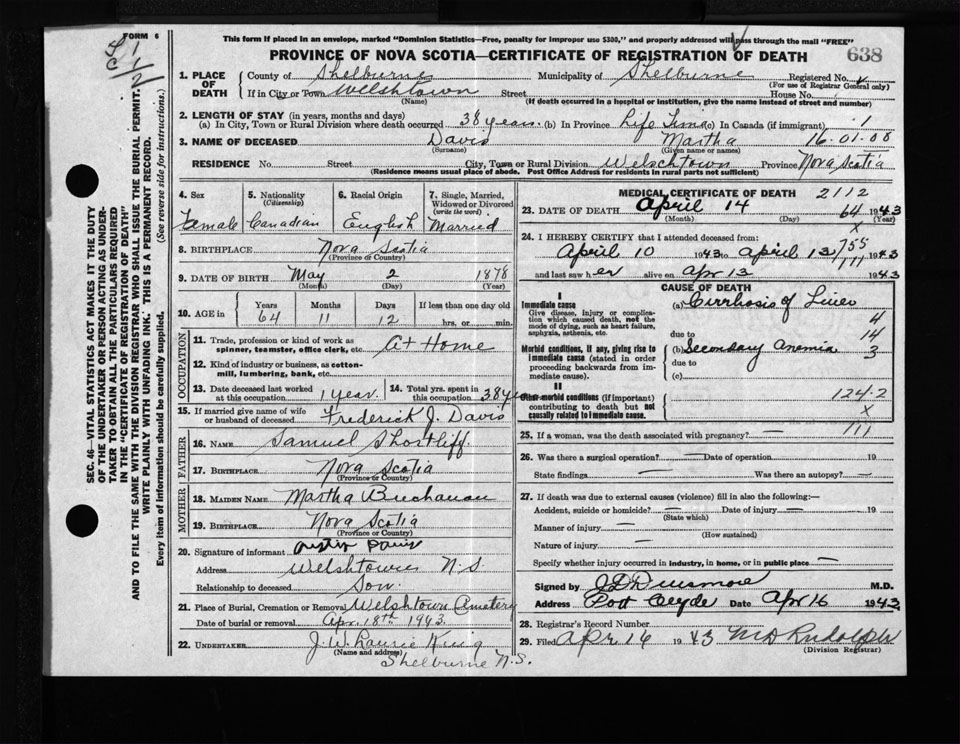 FORM 6
This form if placed in an envelope, marked "Dominion Statistics—Free, penalty for improper use $300," and properly addressed will pass through the mail "FREE"
PROVINCE OF NOVA SCOTIA—CERTIFICATE OF REGISTRATION OF DEATH 638
1. PLACE OF DEATH County of Shelburne Municipality of Shelburne Registered No.
(For use of Registrar General only)
If in City or Town Welshtown Street House No.
(Name) (If death occurred in a hospital or institution, give the name instead of street and number)
2. LENGTH OF STAY (in years, months and days)
(a) In City, Town or Rural Division where death occurred 38 years. (b) In Province Life Time (c) In Canada (if immigrant)
3. NAME OF DECEASED Davis Martha 16-01-08
(Surname) (Given name or names)
RESIDENCE No. Street City, Town or Rural Division Welschtown Province Nova Scotia
(Residence means usual place of abode. Post Office Address for residents in rural parts not sufficient)
4. Sex 5. Nationality (Citizenship) 6. Racial Origin 7. Single, Married, Widowed or Divorced (write the word)
Female Canadian English Married
8. BIRTHPLACE Nova Scotia
(Province or Country)
9. DATE OF BIRTH May 2 1878
(Month) (Day) (Year)
10. AGE in Years Months Days If less than one day old
64 11 12 hrs. or min.
OCCUPATION
11. Trade, profession or kind of work as spinner, teamster, office clerk, etc. At Home
12. Kind of industry or business, as cotton-mill, lumbering, bank, etc.
13. Date deceased last worked at this occupation 1 year. 14. Total yrs. spent in this occupation 38 yrs
15. If married give name of wife or husband of deceased Frederick J. Davis
FATHER
16. NAME Samuel Shortliff
17. BIRTHPLACE Nova Scotia
(Province or Country)
MOTHER
18. MAIDEN NAME Martha Buchanan
19. BIRTHPLACE Nova Scotia
(Province or Country)
20. Signature of informant Davis
Address Welshtown N.S.
Relationship to deceased Son.
21. Place of Burial, Cremation or Removal Welshtown Cemetery
Date of burial or removal Apr. 18th 1943.
22. UNDERTAKER J. W. Laurie King
(Name and address)
Shelburne N.S.
MEDICAL CERTIFICATE OF DEATH 2112
23. DATE OF DEATH April 14 64 1943
(Month) (Day) x
24. I HEREBY CERTIFY that I attended deceased from:
April 10 1943 to April 13 1943
755
111
and last saw her alive on Apr 13 1943
CAUSE OF DEATH
I
Immediate cause (a) Cirrhosis of Liver
Give disease, injury or complication which caused death, not the mode of dying, such as heart failure, asphyxia, asthenia, etc.
4
due to 14
Morbid conditions, if any, giving rise to immediate cause (stated in order proceeding backwards from immediate cause). (b) Secondary Anemia 3
due to
(c)
II
Other morbid conditions (if important) contributing to death but not causally related to immediate cause. 124-2
x
111
25. If a woman, was the death associated with pregnancy? —
26. Was there a surgical operation? — Date of operation — 19
State findings — Was there an autopsy? —
27. If death was due to external causes (violence) fill in also the following:—
Accident, suicide or homicide? — Date of injury — 19
(State which)
Manner of injury —
(How sustained)
Nature of injury —
Specify whether injury occurred in industry, in home, or in public place —
Signed by M.D.
Address Port Clyde Date Apr 16 1943
28. Registrar's Record Number
29. Filed Apr 16 1943 M D Rudolph
(Division Registrar)
SEC. 46—VITAL STATISTICS ACT MAKES IT THE DUTY
OF THE UNDERTAKER OR PERSON ACTING AS UNDER-
TAKER TO OBTAIN ALL THE PARTICULARS REQUIRED
IN THE "CERTIFICATE OF REGISTRATION OF DEATH"
AND TO FILE THE SAME WITH THE DIVISION REGISTRAR WHO SHALL ISSUE THE BURIAL PERMIT.
WRITE PLAINLY WITH UNFADING INK. THIS IS A PERMANENT RECORD.
Every item of information should be carefully supplied. (See reverse side for instructions.)